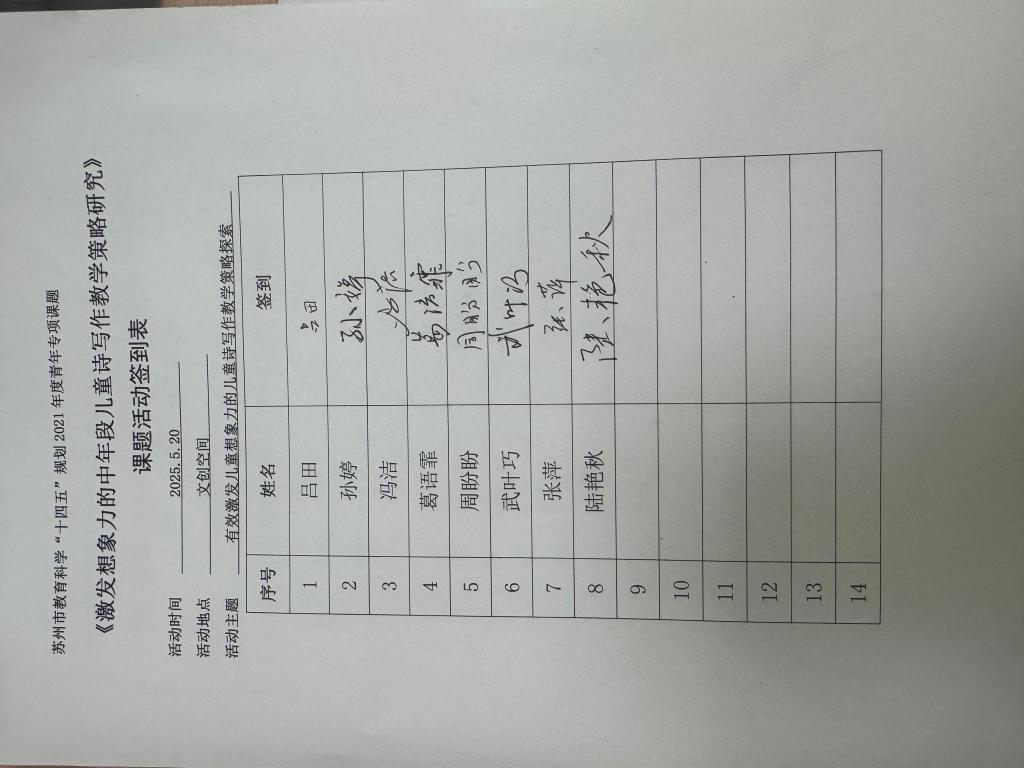 苏州市教育科学“十四五”规划2021年度青年专项课题
《激发想象力的中年段儿童诗写作教学策略研究》
课题活动签到表
活动时间 2025.5.20
活动地点 文创空间
活动主题 有效激发儿童想象力的儿童诗写作教学策略探索
序号 姓名 签到
1 吕田 吕田
2 孙婷 孙婷
3 冯洁 冯洁
4 葛语霏 葛语霏
5 周盼盼 周盼盼
6 武叶巧 武叶巧
7 张萍 张萍
8 陆艳秋 陆艳秋
9
10
11
12
13
14